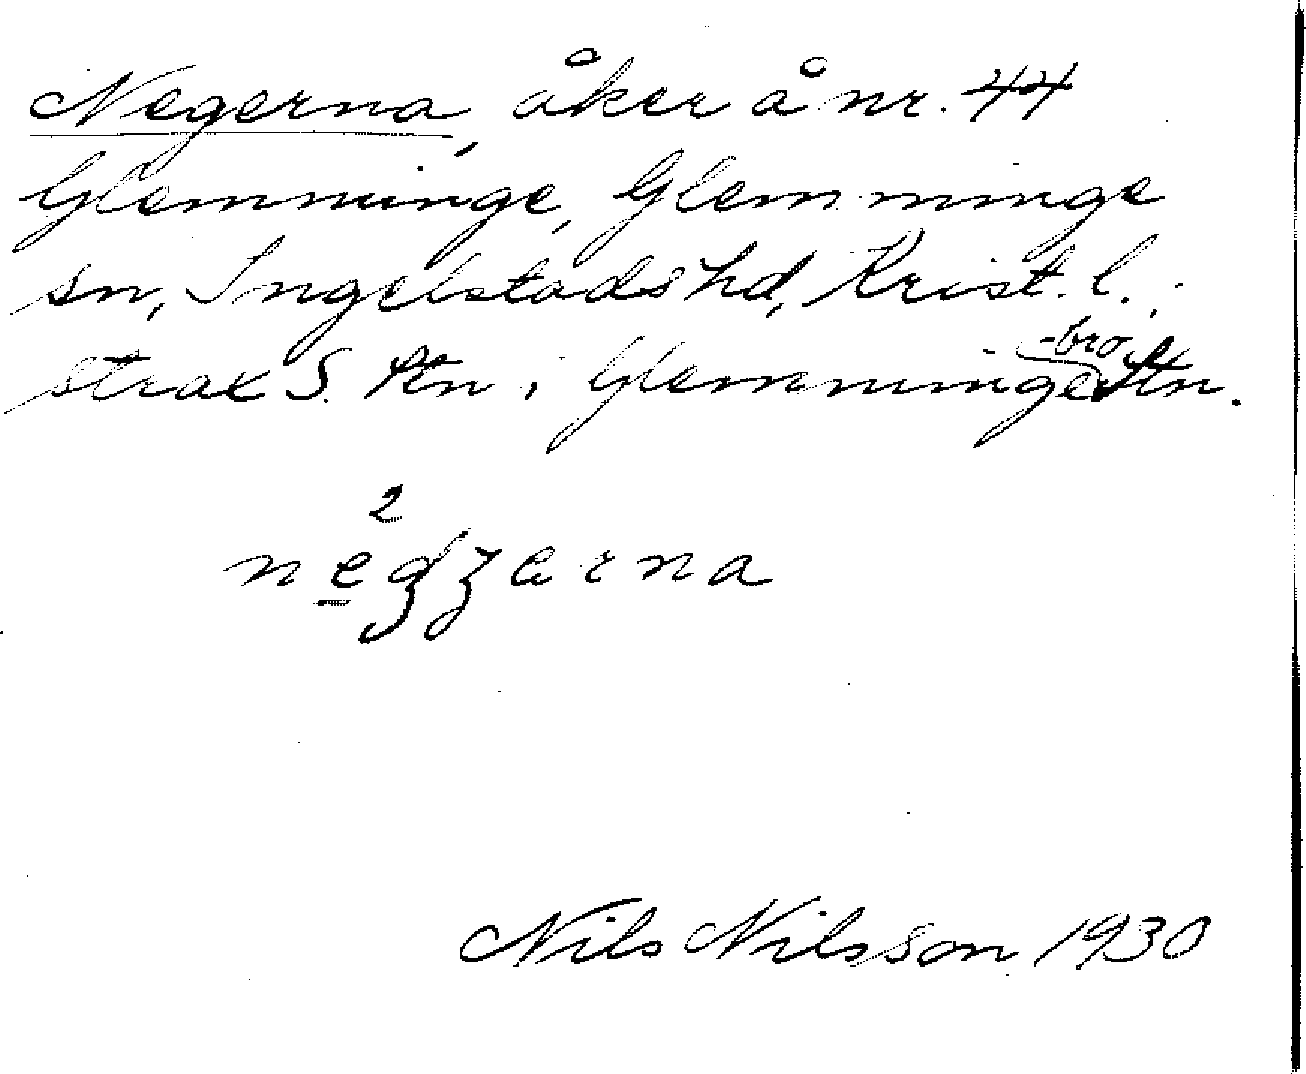 Negerna, åker å nr. 44
Glemminge, Glemminge
sn, Ingelstads hd, Krist. l.,
strax S. Stn i Glemmingebro Stn.
Nils Nilsson 1930